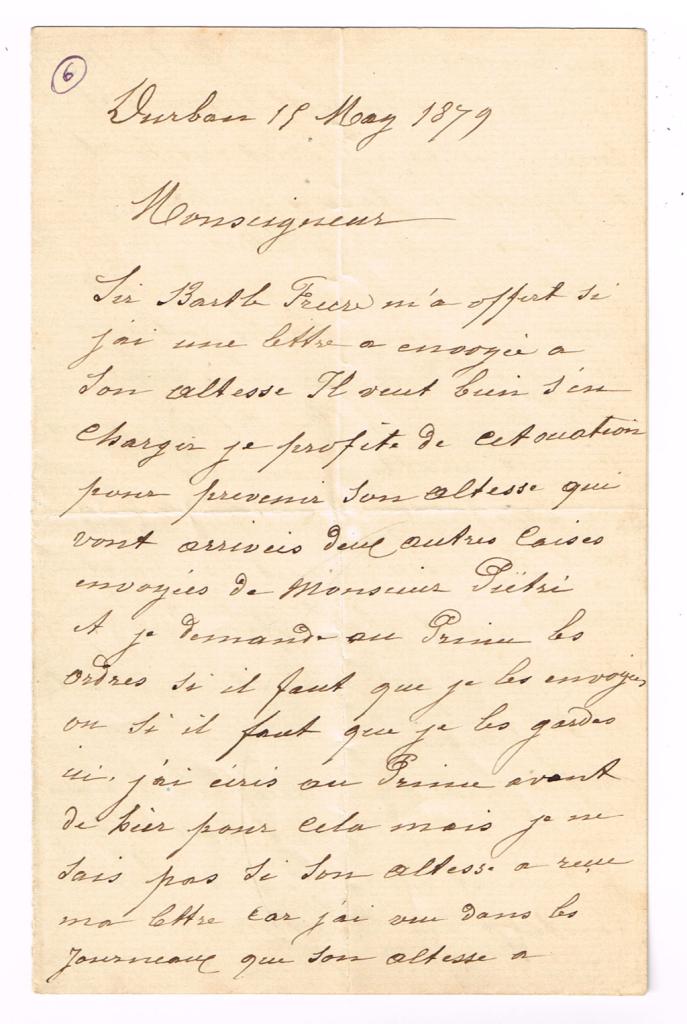 6
Durban 15 May 1879
Monseigneur
Sir Bartle Freere m'a offert si
j'ai une lettre a envoyée a
Son altesse Il veut bien s'en
Charger je profite de cet ouation
pour prevenir Son altesse qui
vont arriveis deux autres Caises
envoyées de Monsieur Piëtri
et je demande au Prince les
ordres si il faut que je les envoyes
ou si il faut que je les gardes
ici. j'ai ecris au Prince avant
de hier pour cela mais je ne
sais pas si Son altesse a reçue
ma lettre car j'ai vue dans les
Journeaux que Son altesse a